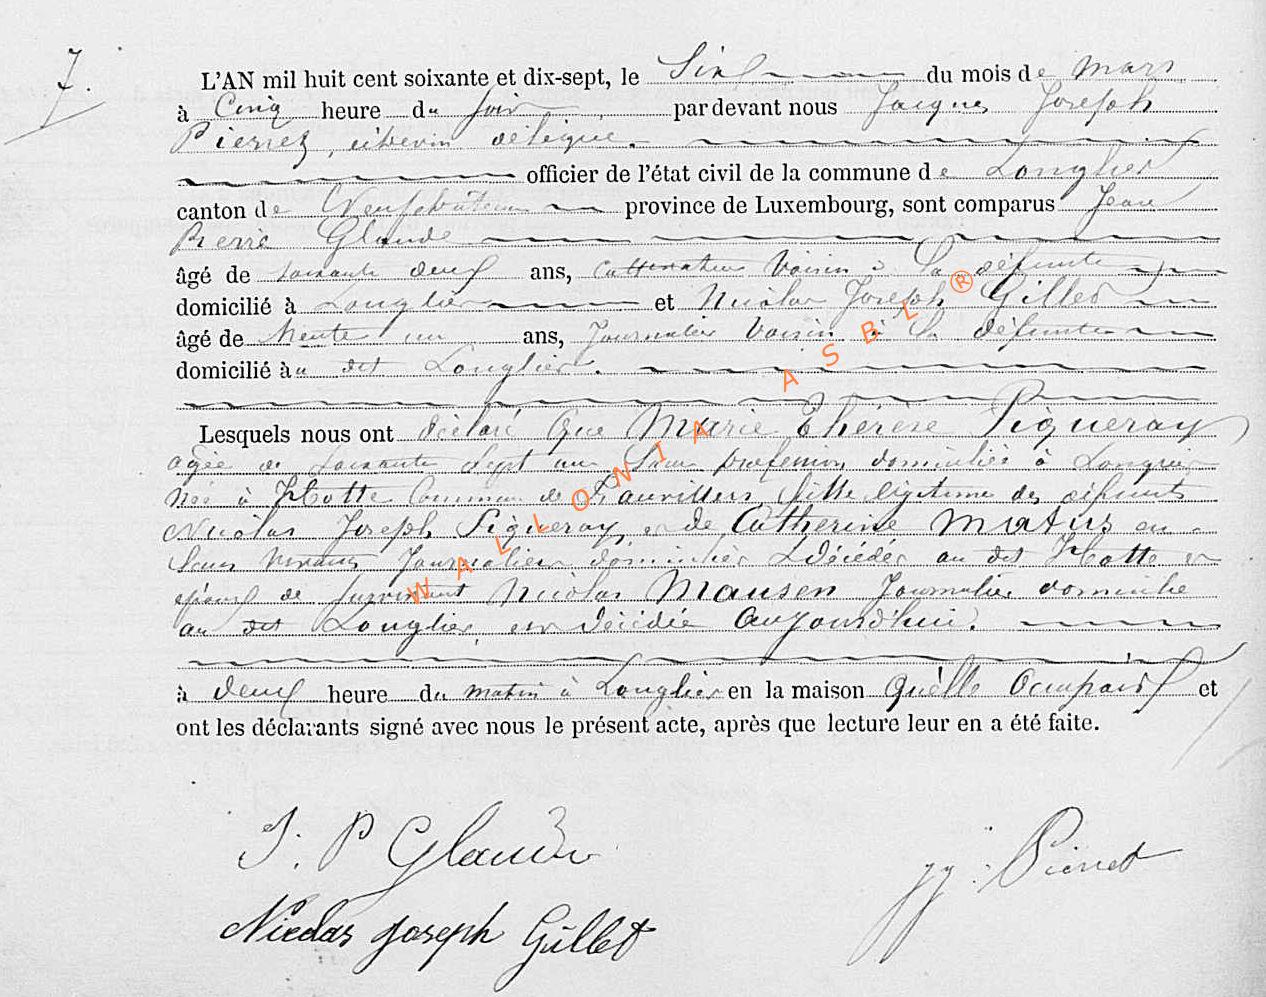 7.
L'AN mil huit cent soixante et dix-sept, le Six du mois de Mars
à Cinq heure du Soir par devant nous Jacques Joseph
Pierret, échevin délégué.
officier de l'état civil de la commune de Longlier
canton de Neufchâteau province de Luxembourg, sont comparus Jean
Pierre Glaude
âgé de soixante deux ans, cultivateur Voisin à La défunte
domicilié à Longlier et Nicolas Joseph Gillet
âgé de trente un ans, Journalier Voisin à la défunte
domicilié au dit Longlier.
Lesquels nous ont déclaré Que Marie Thérèse Piqueray
agée de soixante sept ans Sans profession domiciliée à Longlier
née à Hotte Commune de Fauvillers, fille légitime des défunts
Nicolas Joseph Piqueray et de Catherine Matus en
leurs vivants Journaliers domiciliés & décédés au dit Hotte et
épouse de survivant Nicolas Mausen Journalier domicilié
au dit Longlier, est décédée Aujourd'hui.
à deux heure du matin à Longlier en la maison Qu'elle Occupait et
ont les déclarants signé avec nous le présent acte, après que lecture leur en a été faite.
J. P Glaude
Nicolas Joseph Gillet
JJ. Pierret
WALLONIA ASBL®